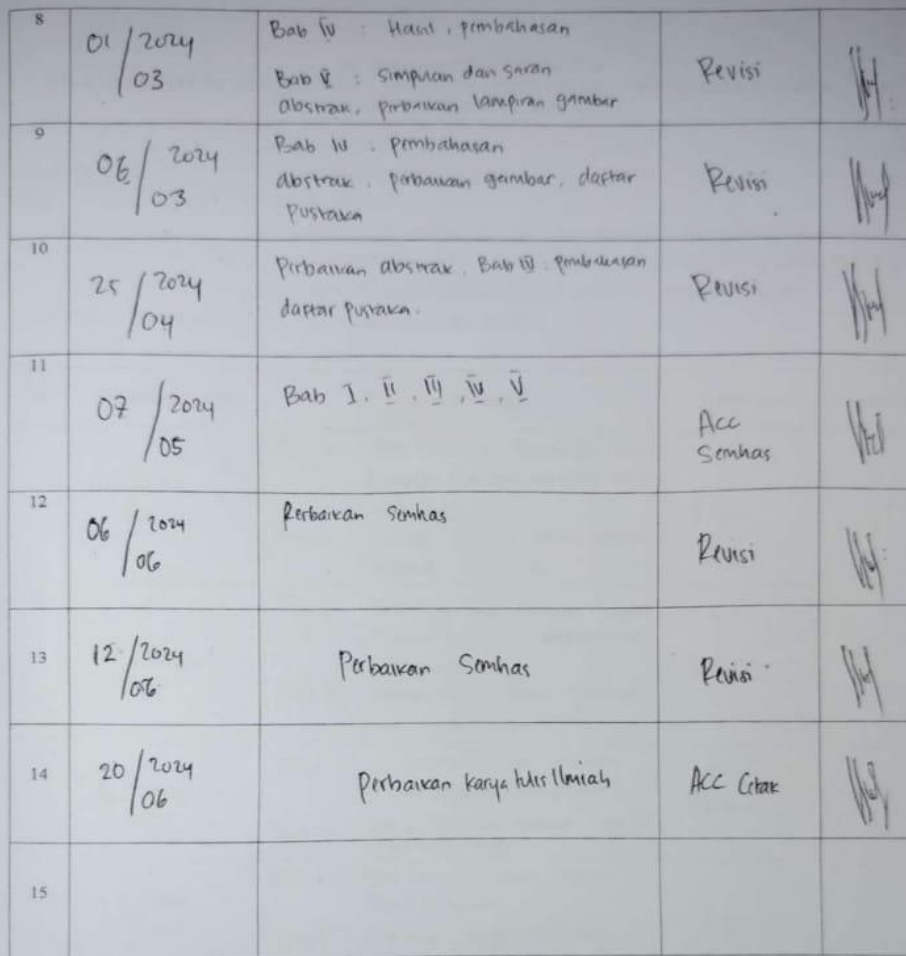 8
01/2024
03
Bab IV : Hasil, pembahasan
Bab V : Simpulan dan Saran
abstrak, perbaikan lampiran gambar
Revisi
9
06/2024
03
Bab IV : pembahasan
abstrak, perbaikan gambar, daftar
Pustaka
Revisi
10
25/2024
04
Perbaikan abstrak, Bab IV : pembahasan
daftar Pustaka.
Revisi
11
07/2024
05
Bab I, II, III, IV, V
Acc
Semhas
12
06/2024
06
Perbaikan Semhas
Revisi
13
12/2024
06
Perbaikan Semhas
Revisi
14
20/2024
06
Perbaikan karya tulis Ilmiah
ACC Cetak
15